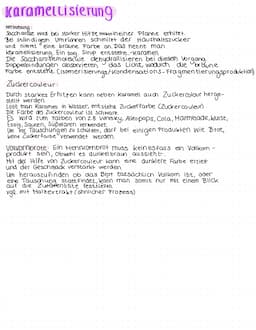 Karamellisierung
Saccharose wird bei starker Hitze in einer Pfanne erhitzt.
Bei ständigem Umrühren schmilzt der Haushaltszucker
und nimmt eine braune Farbe an. Das nennt man
Karamellisierung. Ein sog. Sirup entsteht -Karamell
Die Saccharosemoleküle dehydratisieren bei diesem Vorgang.
Doppelbindungen absorbieren das Licht, wodurch die braune
Farbe entsteht (Isomerisierungs-/Kondensations-/Fragmentierungsprodukten)
Zuckercouleur:
Durch starkes Erhitzen kann neben Karamell auch Zuckercouleur herge-
stellt werden.
Löst man Karamell in Wasser, entsteht Zuckerfarbe (Zuckercouleur)
Die Farbe der Zuckercouleur ist schwarz.
Es wird zum Färben von z.B. Whisky, Alkopops, Cola, Marmelade, Wurst,
Essig, Saucen, Süßwaren verwendet.
Um Täuschungen zu schützen, darf bei einigen Produkten wie Brot,
keine Zuckercouleur verwendet werden.
Vollkornbrote: Ein Kleinkornbrot muss keinesfalls ein Vollkorn-
produkt sein, obwohl es dunkelbraun aussieht.
Mit der Hilfe von Zuckercouleur kann eine dunklere Farbe erzielt
und der Geschmack verstärkt werden.
Um herauszufinden ob das Brot tatsächlich Vollkorn ist, oder
eine Täuschung stattfindet, kann man somit nur mit einem Blick
auf die Zutatenliste feststellen.
vgl. mit Malzextrakt (ähnlicher Prozess)